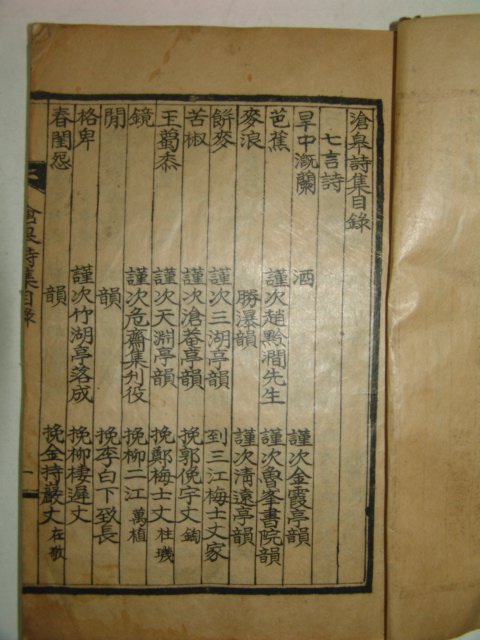 滄皐詩集目錄
七言詩
旱中漑蘭 酒 謹次金霞亭韻
芭蕉 謹次趙黔澗先生 謹次魯峯書院韻
麥浪 勝瀑韻 謹次淸遠亭韻
餠麥 謹次三湖亭韻 到三江梅士丈家
苦椒 謹次滄菴亭韻 挽郭俛宇丈 鍧
玉蜀黍 謹次天淵亭韻 挽鄭梅士丈 柱璣
鏡 謹次危齋集刋役 挽柳二江 萬植
閒 韻 挽李白下致長
格卑 謹次竹湖亭落成 挽柳棲遲丈
春閨怨 韻 挽金持嚴丈 在敬
滄皐詩集目錄 一